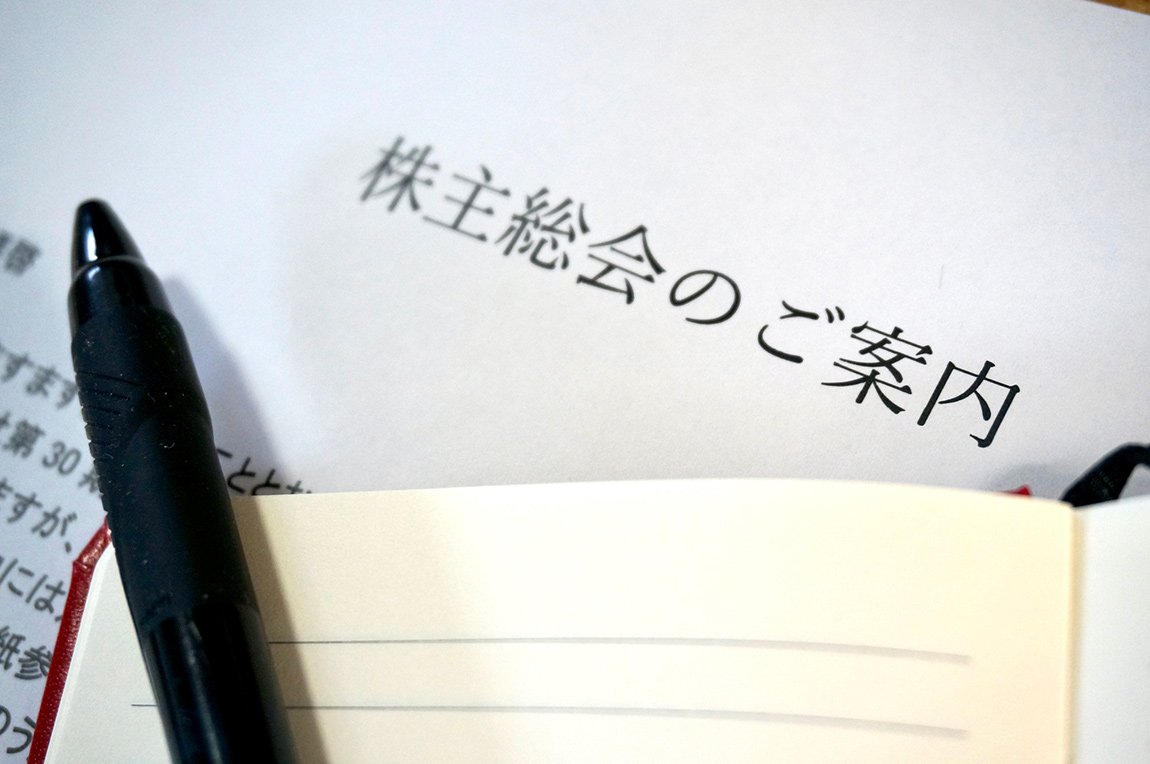 株主総会のご案内
すます
第30
こととな
ますが、
には
紙参
のう